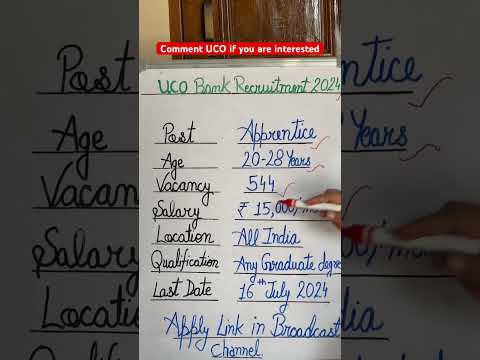 Comment UCO if you are interested
UCO Bank Recruitment 2024
Post Apprentice
Age 20-28 Years
Vacancy 544
Salary ₹ 15,000/-
Location All India
Qualification Any Graduate degree
Last Date 16th July 2024
Apply Link in Broadcast
Channel